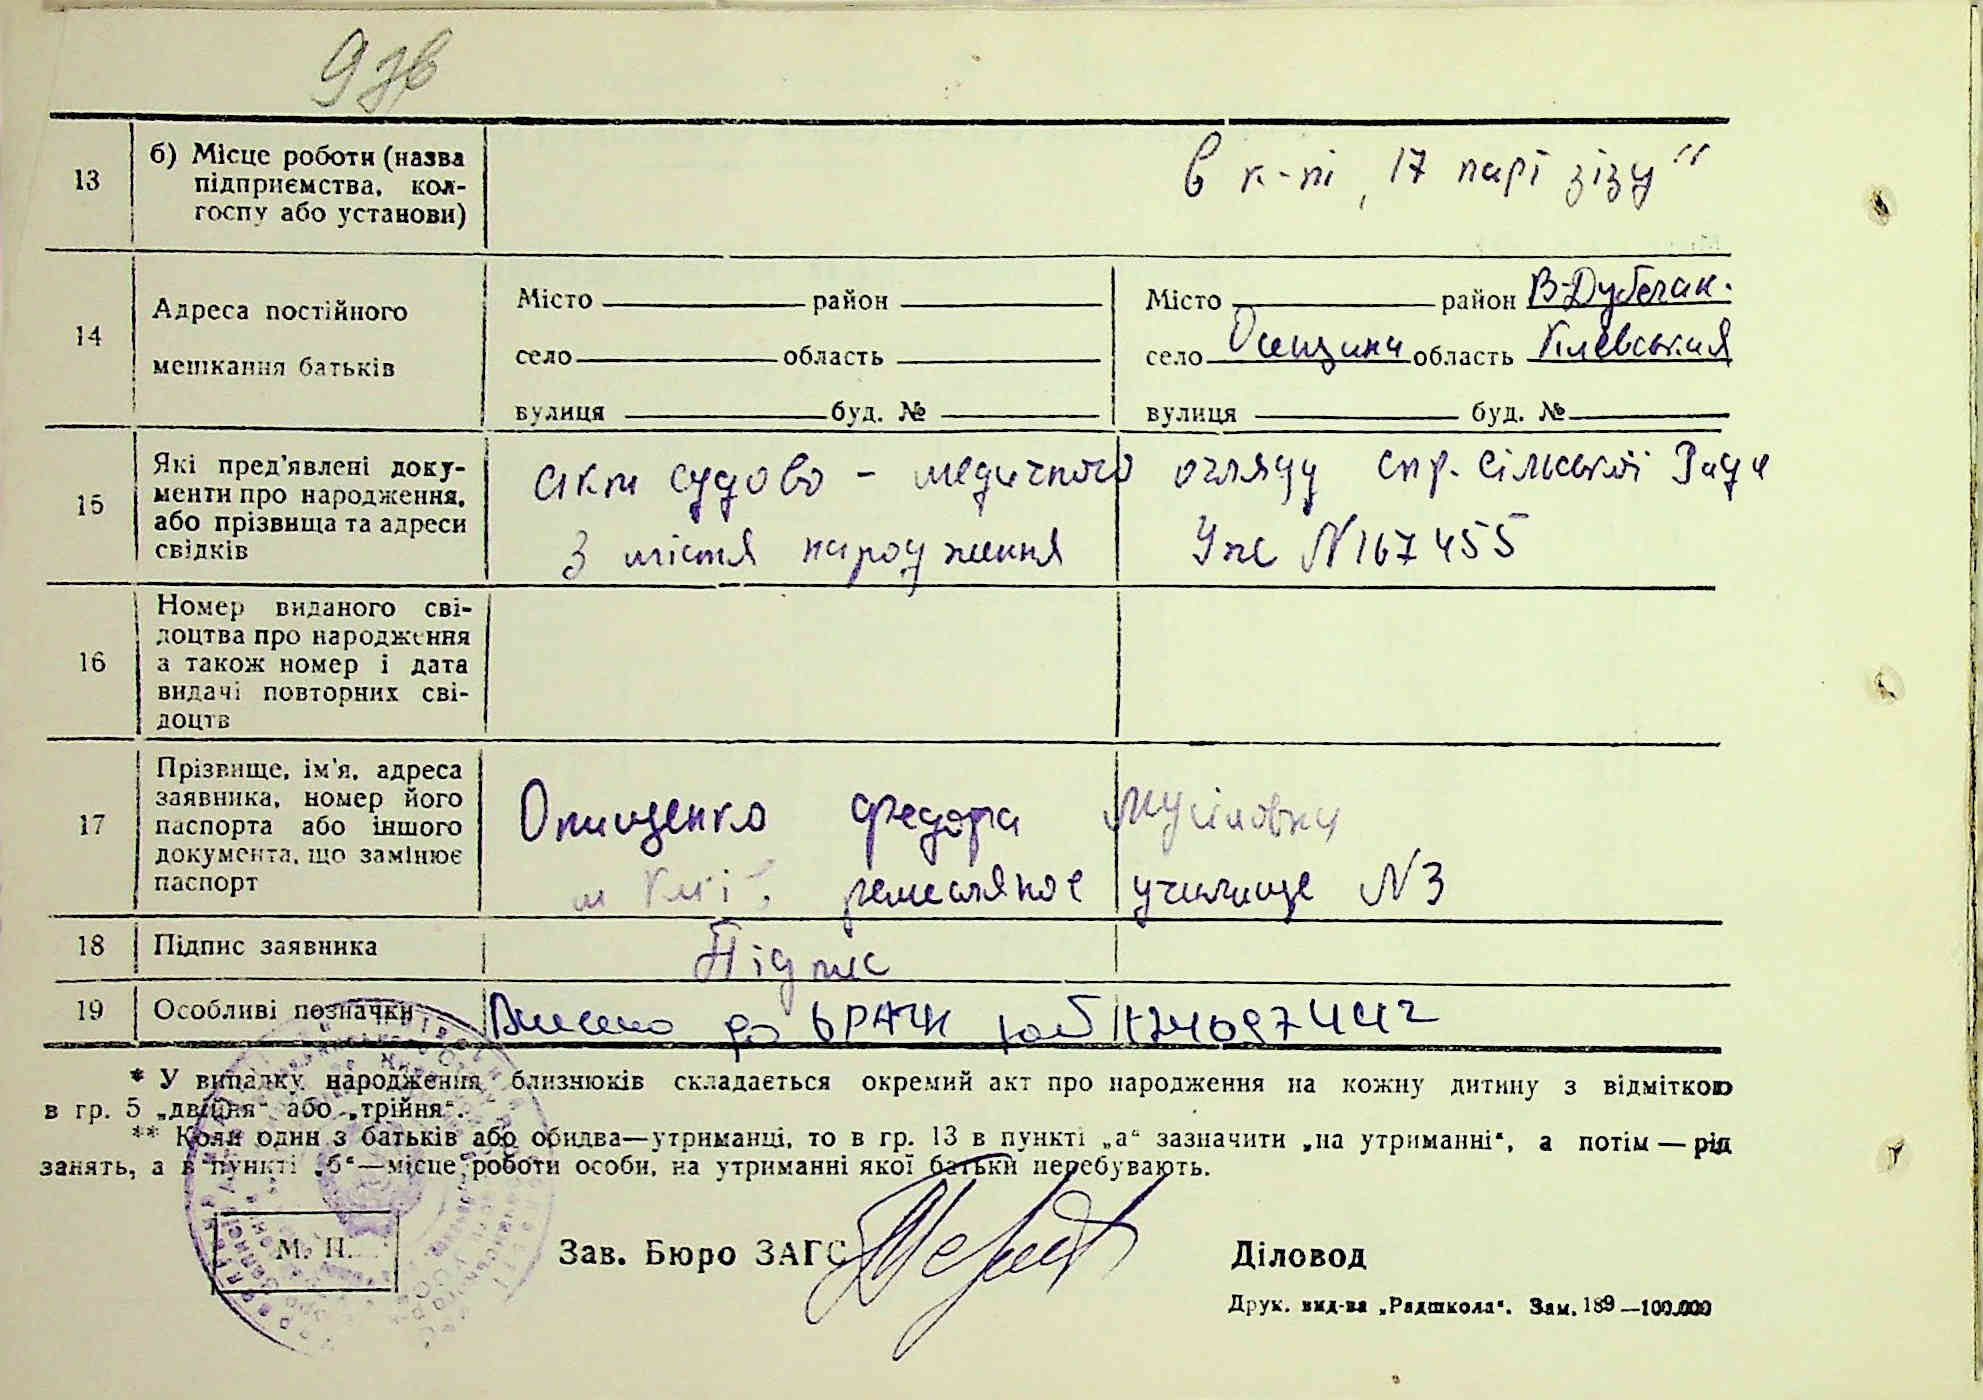 9 зв
13
б) Місце роботи (назва
підприємства, кол-
госпу або установи)
в к-пі „17 парт зїзу"
14
Адреса постійного
мешкання батьків
Місто район
село область
вулиця буд. №
Місто район В-Дубечан.
село Осещини область Київський
вулиця буд. №
15
Які пред'явлені доку-
менти про народження,
або прізвища та адреси
свідків
акт судово - медичного огляду спр. сільської Ради
З місця народження Упс N 167455
16
Номер виданого сві-
доцтва про народження
а також номер і дата
видачі повторних сві-
доцтв
17
Прізвище, ім'я, адреса
заявника, номер його
паспорта або іншого
документа, що замінює
паспорт
Онищенко Федора
м Київ, ремесляное училище N3
18
Підпис заявника
Підпис
19
Особливі позначки
Внесено до ДРАЦС
* У випадку народження близнюків складається окремий акт про народження на кожну дитину з відміткою
в гр. 5 „двійня" або „трійня".
** Коли один з батьків або обидва—утриманці, то в гр. 13 в пункті „а" зазначити „на утриманні", а потім — рід
занять, а в пункті „б"—місце роботи особи, на утриманні якої батьки перебувають.
М. П.
Зав. Бюро ЗАГС
Діловод
Друк. вид-ва „Радшкола". Зам. 189—100.000